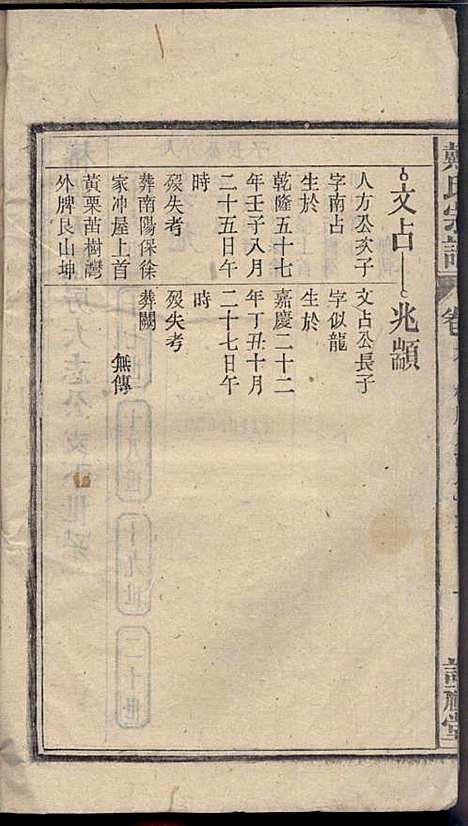 戴氏宗譜
卷
文占
人方公次子
字南占
生於
乾隆五十七
年壬子八月
二十五日午
時
歿失考
葬南陽保徐
家冲屋上首
黃栗苗樹灣
外牌艮山坤
兆顓
文占公長子
字似龍
生於
嘉慶二十二
年丁丑十月
二十七日午
時
歿失考
葬闕
無傳